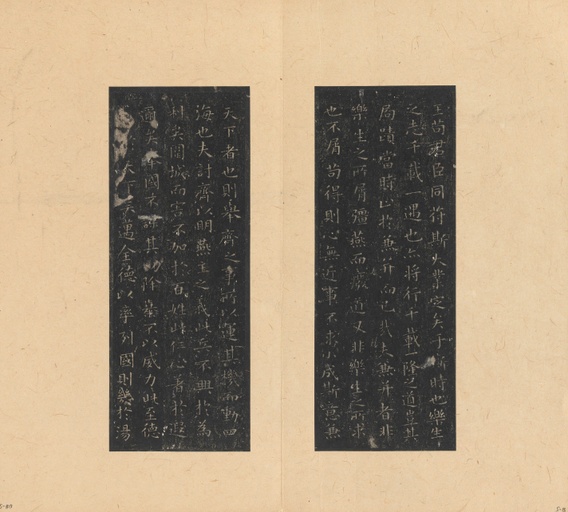 主苟君臣同符斯大業定矣于斯時也樂生
之志千載一遇也亦將行千載一隆之道豈其
局蹟當時止於兼并而已哉夫兼并者非
樂生之所屑彊燕而廢道又非樂生之所求
也不屑苟得則心無近事不求小成斯意兼
天下者也則舉齊之事所以運其機而動四
海也夫討齊以明燕主之義此兵不興於為
利矣圍城而害不加於百姓此仁心著於遐
邇矣舉國不謀其功除暴不以威力此至德
天下矣邁全德以率列國則幾於湯